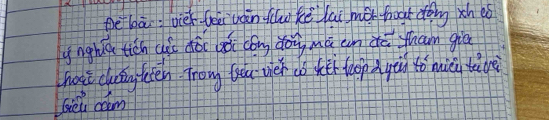 Đề bài: viết bài văn kể lại một hoạt động xh có
ý nghĩa tích cực đối với cộng đồng mà em đã tham gia
hoặc chứng kiến. Trong bài viết có kết hợp 2 yếu tố miêu tả và
biểu cảm